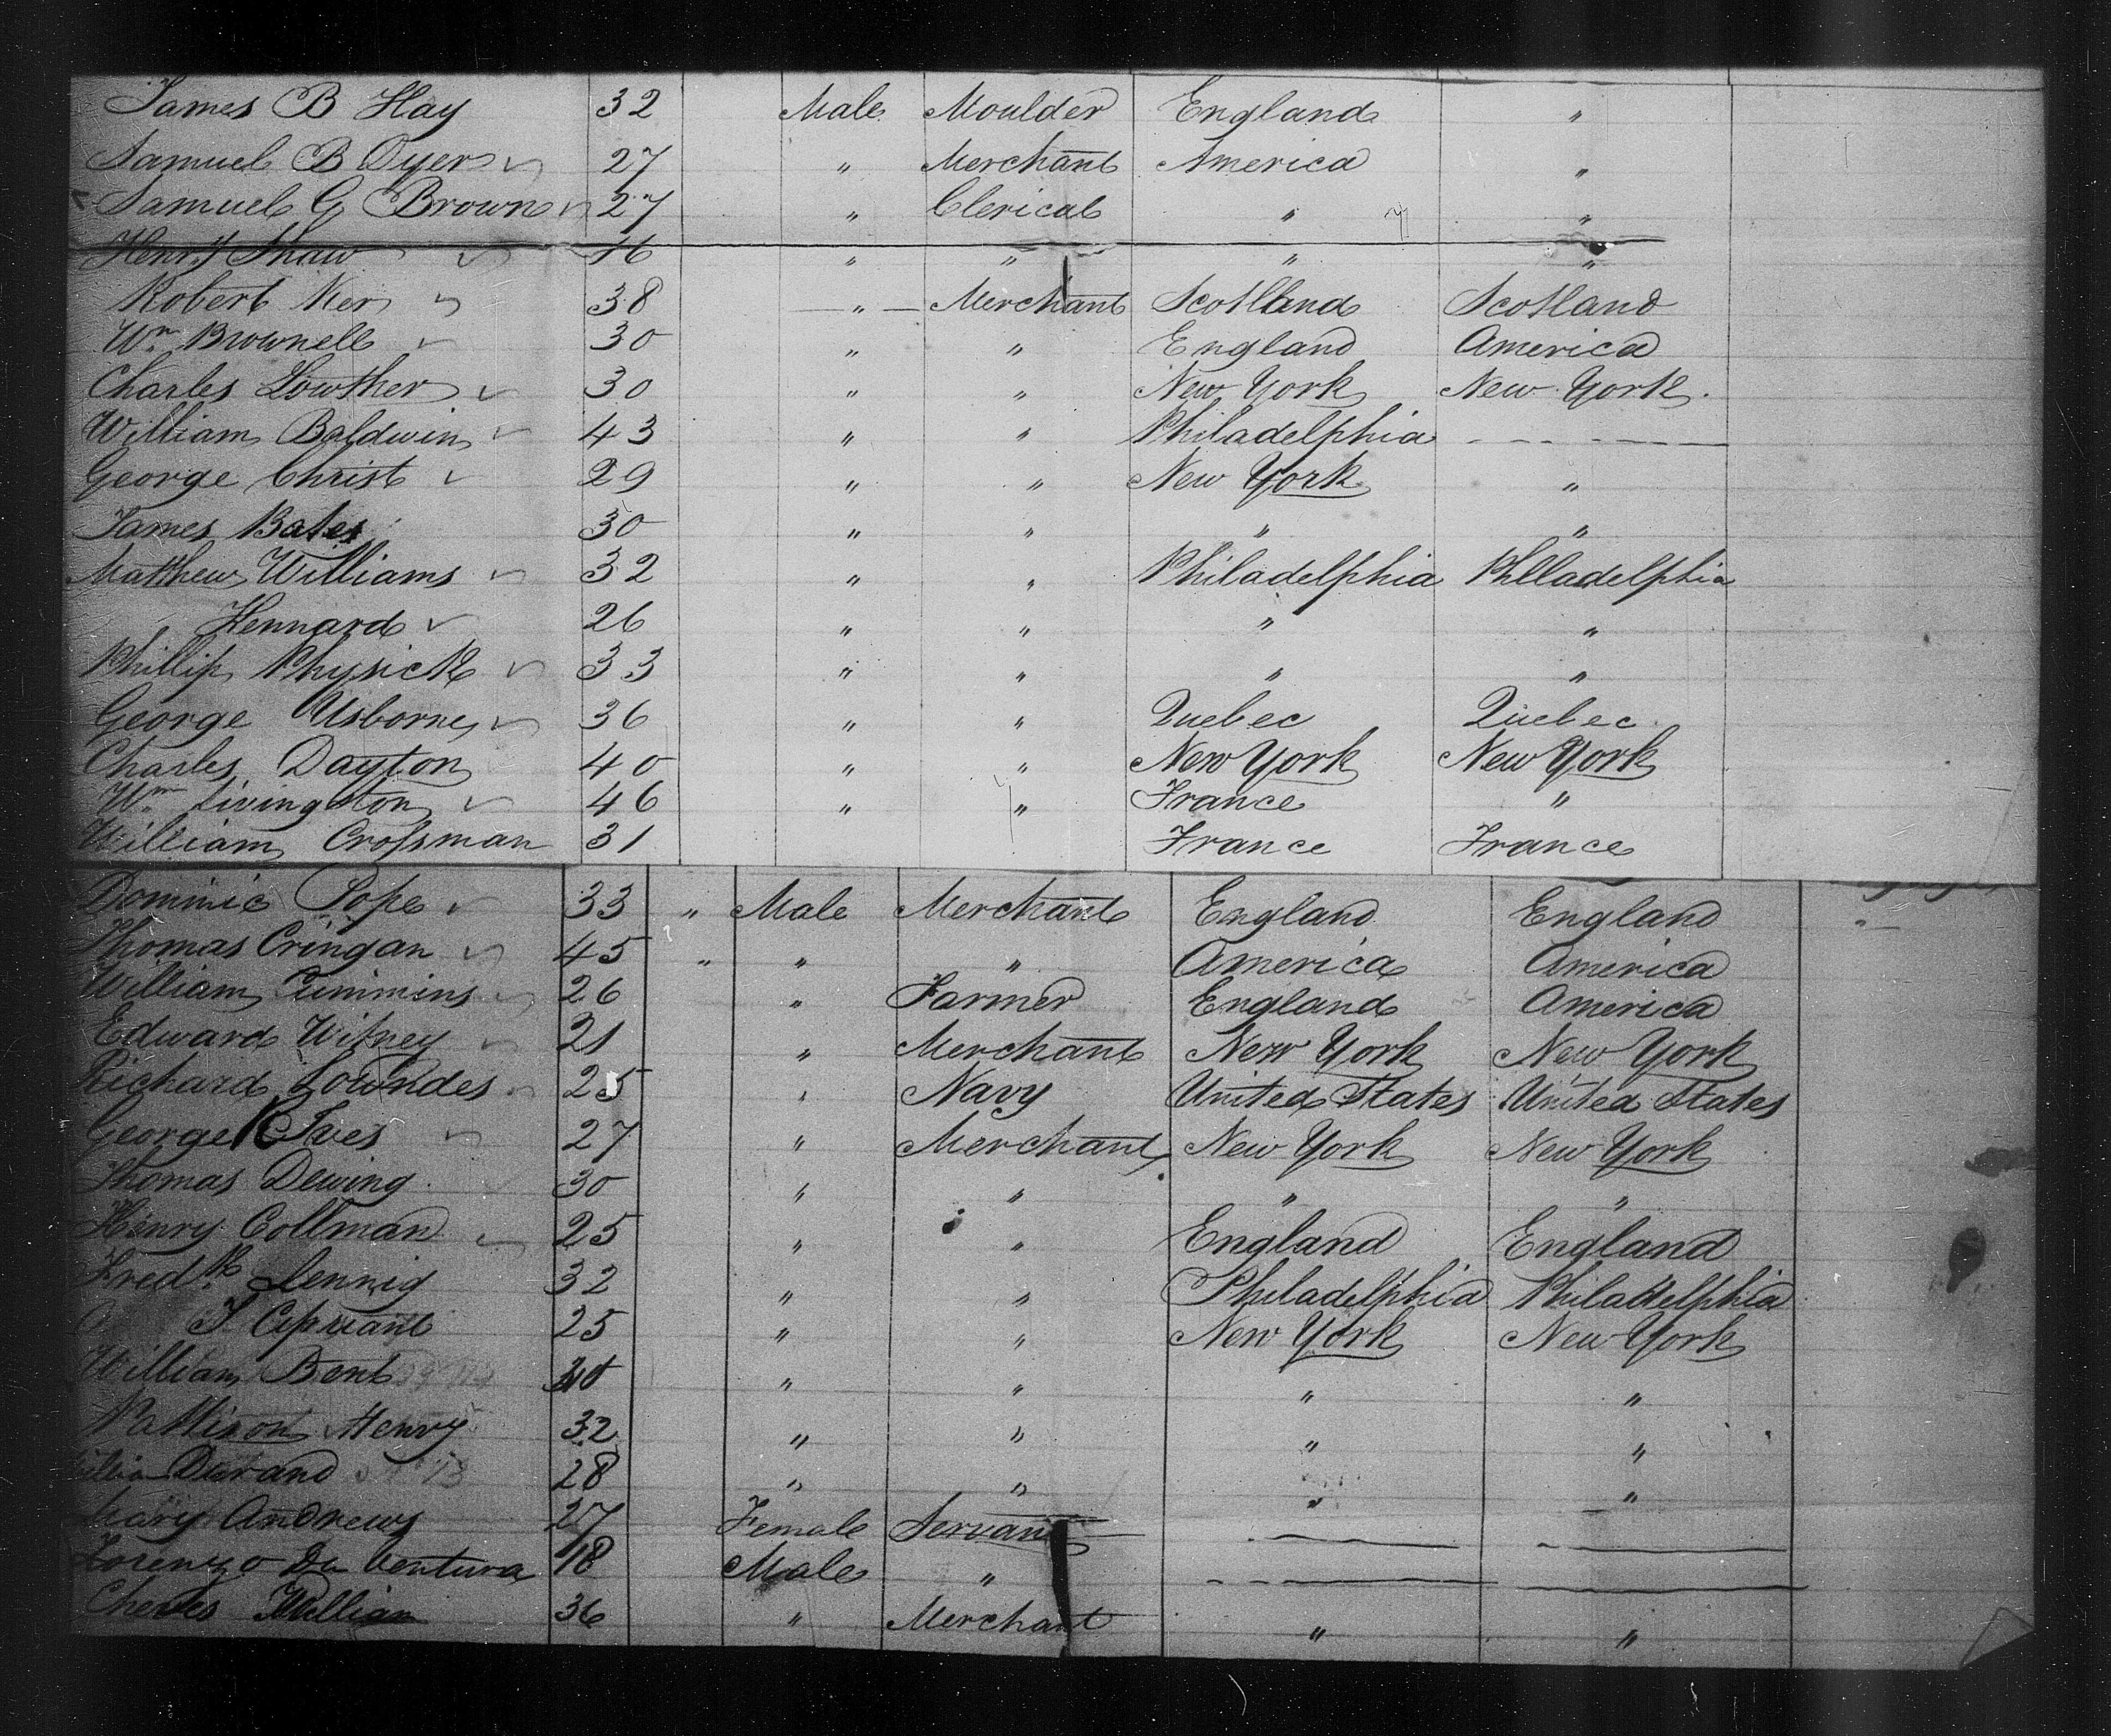 James B Hay 32 Male Moulder England "
Samuel B Dyer 27 " Merchant America "
Samuel G Brown 27 " Clerical " "
Henry Shaw 46 " " " "
Robert Ker 38 " Merchant Scotland Scotland
Wm Brownell 30 " " England America
Charles Lowther 30 " " New York New York
William Baldwin 43 " " Philadelphia
George Christ 29 " " New York "
James Bates 30 " " " "
Matthew Williams 32 " " Philadelphia Philadelphia
Hennard 26 " " " "
Phillip Physick 33 " " " "
George Usborne 36 " " Quebec Quebec
Charles Dayton 40 " " New York New York
Wm Livingston 46 " " France "
William Crossman 31 France France
Dominic Pope 33 " Male Merchant England England "
Thomas Cringan 45 " " " America America
William Cummins 26 " Farmer England America
Edward Witney 21 " Merchant New York New York
Richard Lowndes 25 " Navy United States United States
George R Ives 27 " Merchant New York New York
Thomas Dewing 30 " " " "
Henry Collman 25 " " England England
Fredk Lennig 32 " " Philadelphia Philadelphia
25 " " New York New York
William Bent " " " "
Pattison Henry 32 " " " "
Durand 28 " " " "
Mary Andrews 27 Female Servant
Lorenzo Da Ventura 18 Male "
Cheves William 36 " Merchant " "